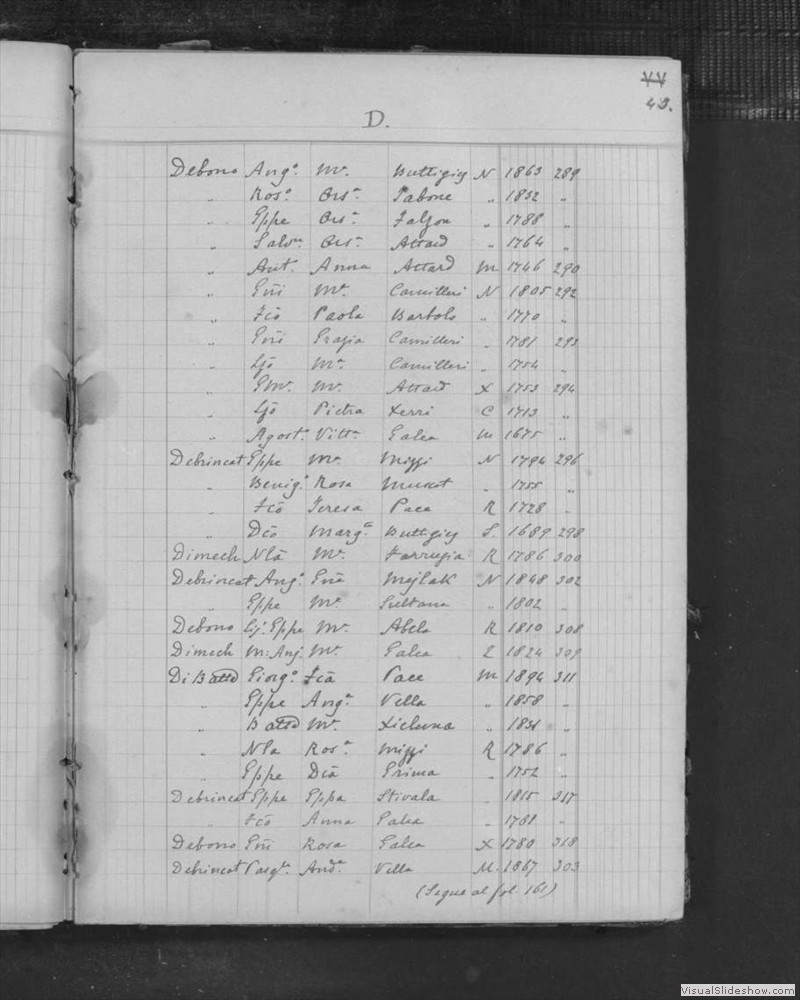 43.
D.
Debono Ang.ᵒ Mᵃ. Buttigieg N 1863 289
„ Ros.ᵃ Ors.ᵃ Tabone „ 1832 „
„ Gppe Ors.ᵃ Falzon „ 1788 „
„ Salv.ʳᵉ Ors.ᵃ Attard „ 1764 „
„ Ant. Anna Attard M 1746 290
„ Gñi Mᵃ. Camilleri N 1805 292
„ Fcõ Paola Barbolo „ 1770 „
„ Gñi Grazia Camilleri „ 1781 293
„ Ljõ Mᵃ. Camilleri „ 1754 „
„ Gᵐᵒ. Mᵃ. Attard X 1753 294
„ Ljõ Pietra Xerri C 1713 „
„ Agost.ᵒ Vitt.ᵃ Galea M 1675 „
Debrincat Gppe Mᵃ. Mizzi N 1794 296
„ Benig.ᵒ Rosa Muscat „ 1755 „
„ Fcõ Teresa Pace R 1728 „
„ Dcõ Marg.ᵗᵃ Buttgieg S. 1689 298
Dimech Nlã Mᵃ. Farrugia R 1786 300
Debrincat Ang.ᵒ Gñã Mejlak N 1848 302
„ Gppe Mᵃ. Sultana „ 1802 „
Debono Gppe Mᵃ. Abela R 1810 308
Dimech M: Anj. Mᵃ. Galea Z 1824 309
Di Battᵃ Giorg.ᵒ Fcã Pace M 1894 311
„ Gppe Ang.ᵃ Vella „ 1858 „
„ Battᵃ Mᵃ. Xicluna „ 1831 „
„ Nla Ros.ᵃ Mizzi R 1786 „
„ Gppe Dcã Grima „ 1752 „
Debrincat Gppe Gppa Stivala „ 1815 317
„ Fcõ Anna Galea „ 1781 „
Debono Gñi Rosa Galea X 1780 318
Debrincat Pasq.ˡᵉ And.ᵃ Vella M. 1867 303
(Segue al fol. 161)
VisualSlideshow.com